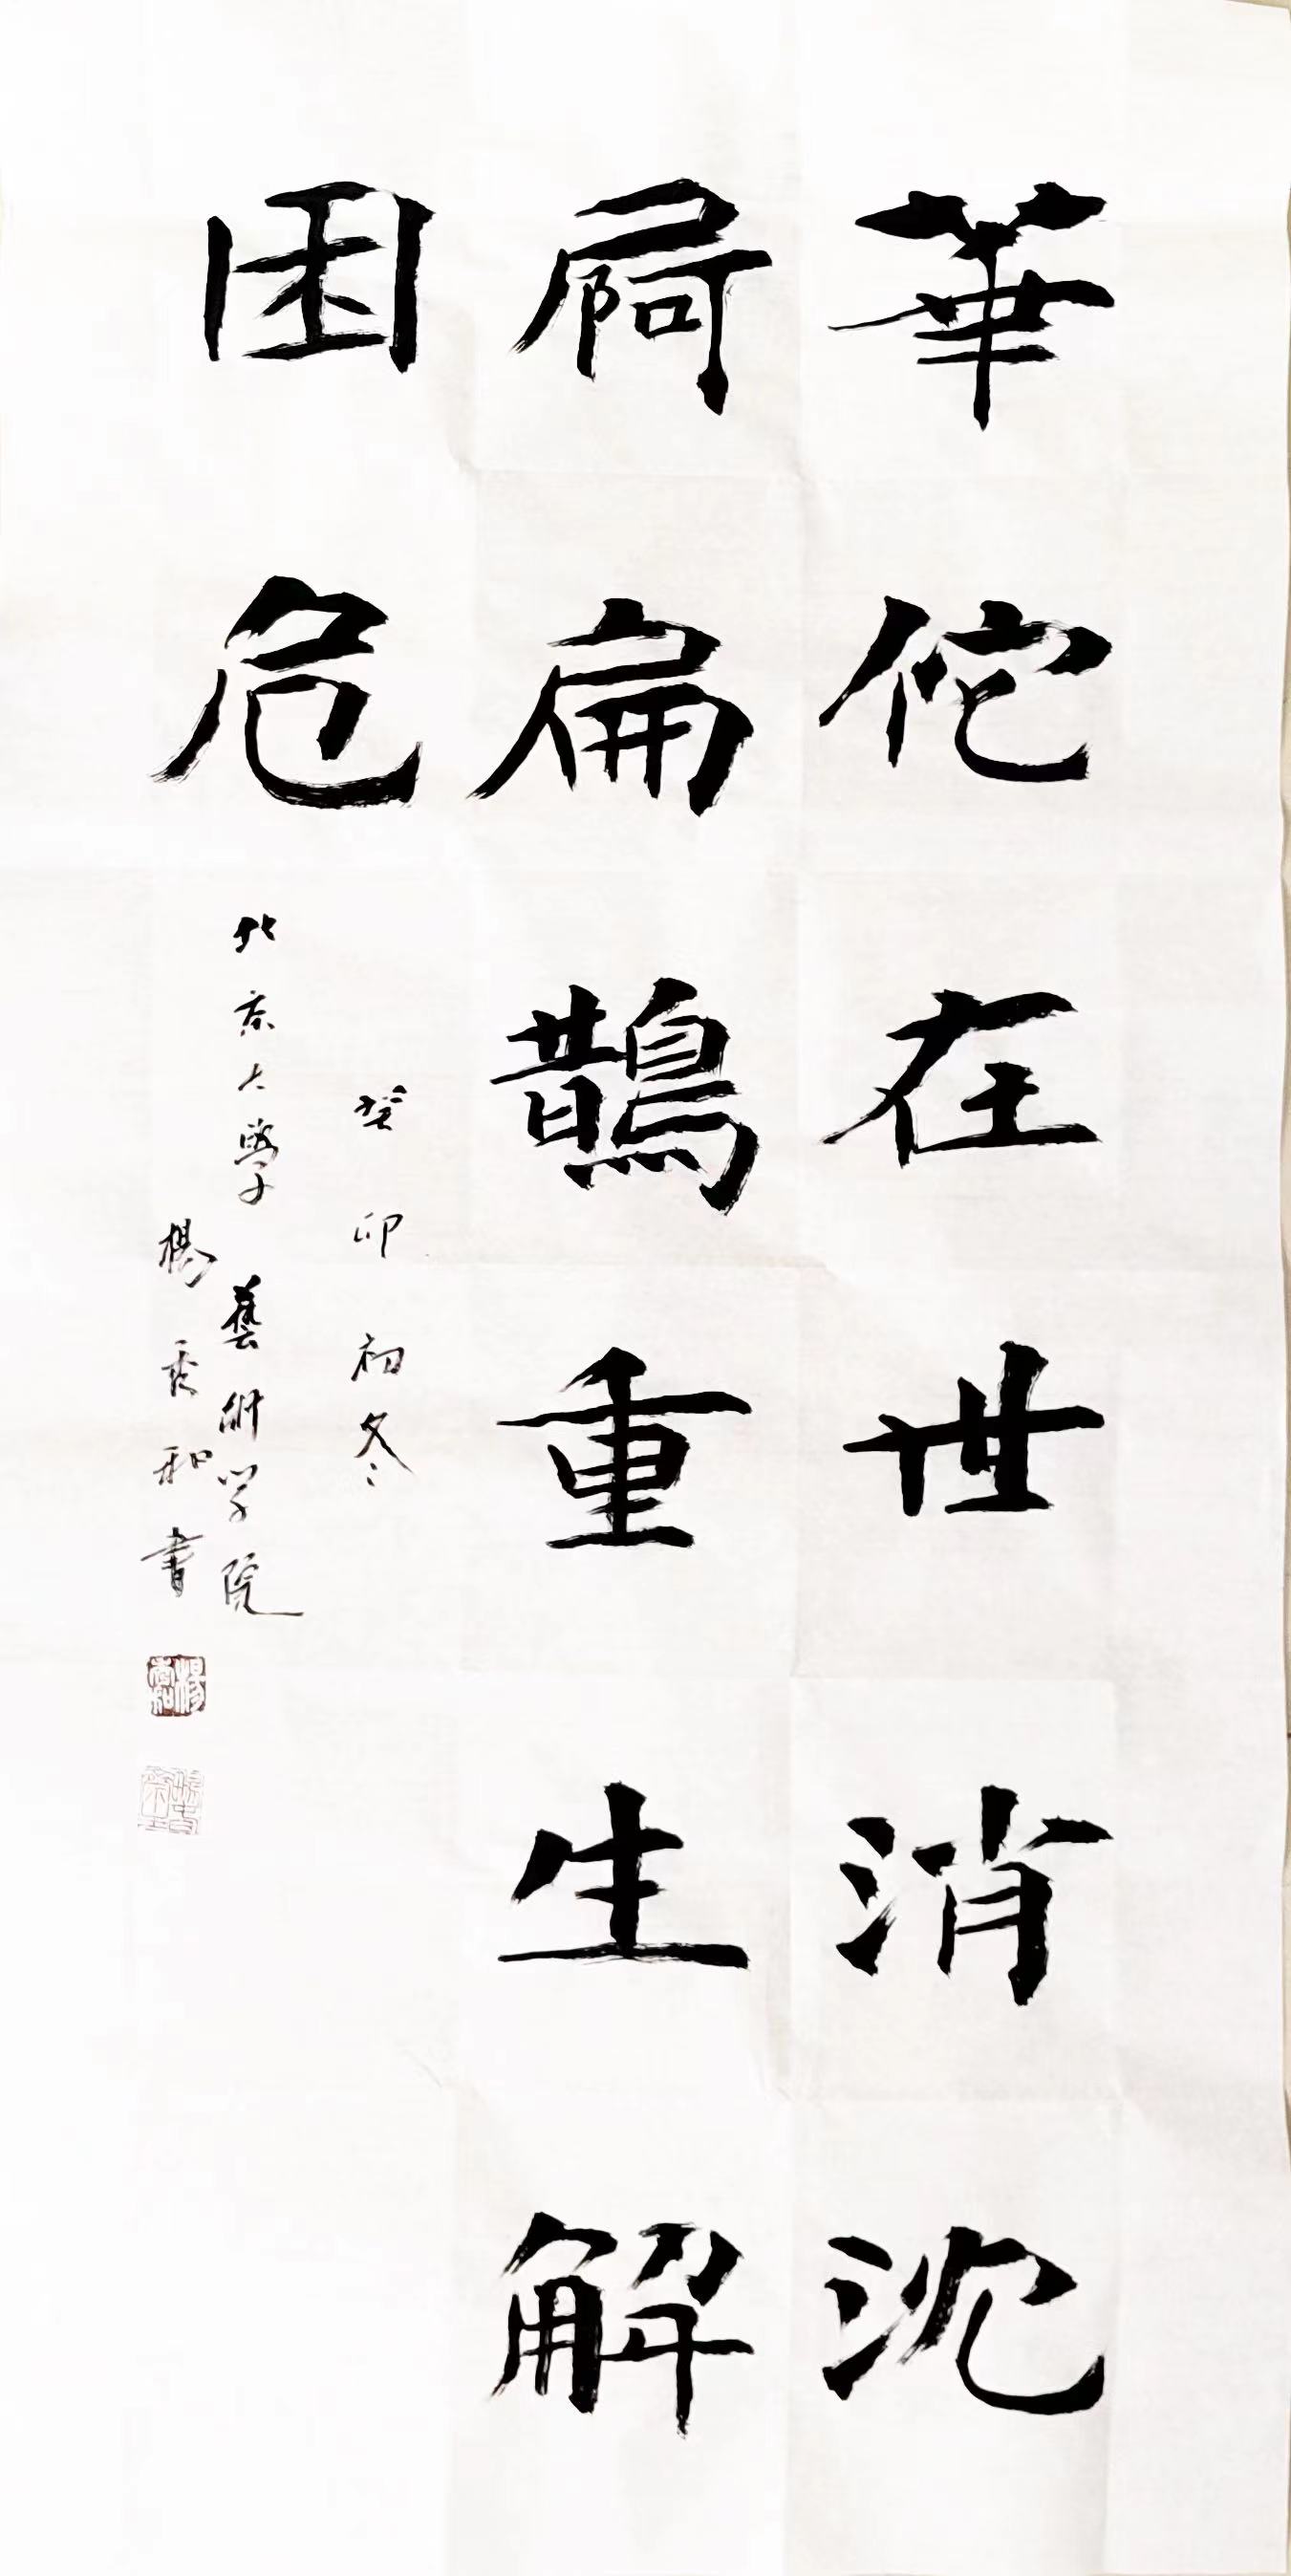 華佗在世消沈
痾扁鵲重生解
困危
癸卯初冬
北京大學藝術学院
楊秀和書